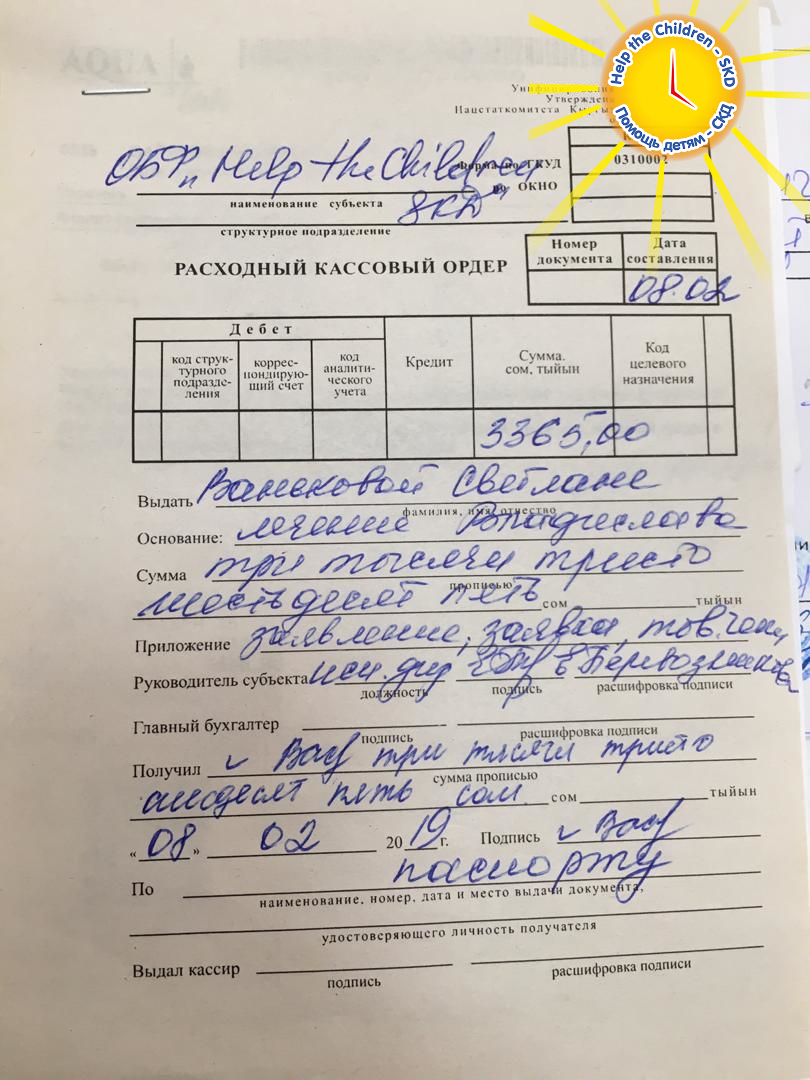 AQUA
Help the Children - SKD
Помощь детям - СКД
Унифицирован
Утвержден
Нацстаткомитета Кыргы
ОБФ „Help the Children
SKD"
Форма по ГКУД 0310002
по ОКНО
наименование субъекта
структурное подразделение
РАСХОДНЫЙ КАССОВЫЙ ОРДЕР
Номер документа Дата составления
08.02
Дебет
код струк-турного подразде-ления коррес-пондирую-щий счет код аналити-ческого учета Кредит Сумма. сом, тыйын Код целевого назначения
3365,00
Выдать Ванековой Светлане
фамилия, имя, отчество
Основание: лечение Владислава
Сумма три тысячи триста
прописью
шестьдесят пять сом тыйын
Приложение заявление, заявка, тов.чеки
Руководитель субъекта исп. дир Перевозникова
должность подпись расшифровка подписи
Главный бухгалтер
подпись расшифровка подписи
Получил три тысячи триста
сумма прописью
пять сом сом тыйын
« 08 » 02 2019 г. Подпись
По паспорту
наименование, номер, дата и место выдачи документа,
удостоверяющего личность получателя
Выдал кассир
подпись расшифровка подписи